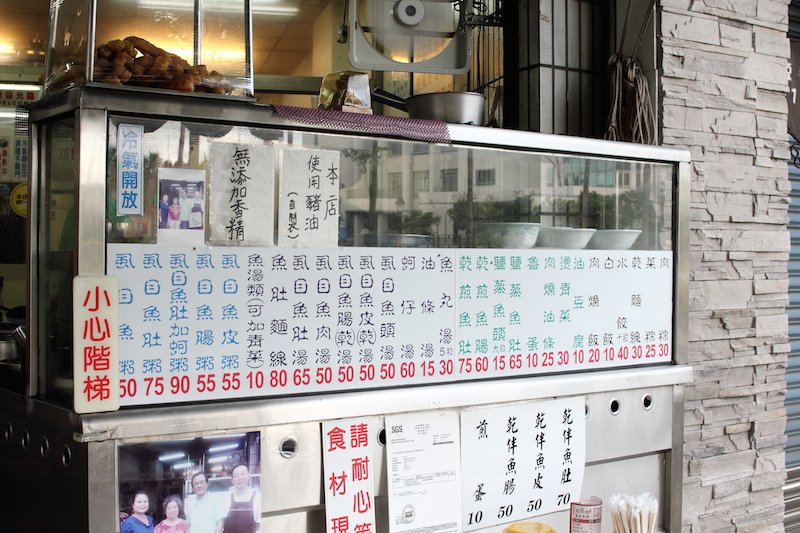 冷氣開放
無添加香精
本店
使用豬油
(自製)
小心階梯
虱目魚粥 50
虱目魚肚粥 75
虱目魚肚加蚵粥 90
虱目魚粥 55
虱目魚皮粥 55
魚湯類(可加青菜) 10
魚肚麵線 80
虱目魚肚湯 65
虱目魚肉湯 50
虱目魚腸乾湯 50
虱目魚皮乾湯 50
虱目魚頭湯 50
蚵仔湯 60
油條 15
魚丸湯 5粒 30
乾煎魚肚 75
乾煎魚腸 60
鹽蒸魚頭 15
鹽蒸魚肚 65
魯蛋 10
肉燥油條 25
燙青菜 30
油豆腐 10
肉燥飯 20
白飯 10
水餃 十粒 40
乾麵線 30
菜粽 25
肉粽 30
請耐心等
食材現
SGS
SGS
煎蛋 10
乾伴魚腸 50
乾伴魚皮 50
乾伴魚肚 70